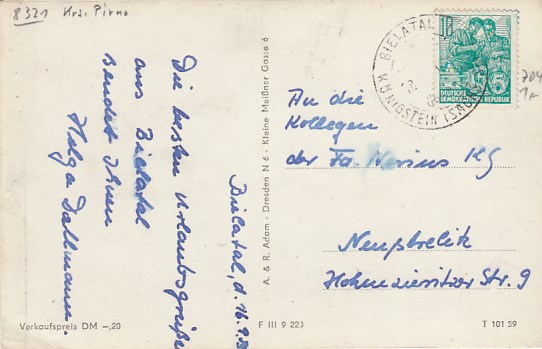 8321 Krs. Pirna
Bielatal, d. 16.9.
Die besten Urlaubsgrüße
aus Bielatal
sendet Ihnen
Helga Dallmann.
Verkaufspreis DM -,20
A. & R. Adam · Dresden N 6 · Kleine Meißner Gasse 6
F III 9 223
BIELATAL
KÖNIGSTEIN (SÄCHS
10
5
DEUTSCHE
DEMOKRATISCHE REPUBLIK
704
An die
Kollegen
der Fa. Nerius KG
Neustrelitz
Hohenzieritzer Str. 9
T 101 59